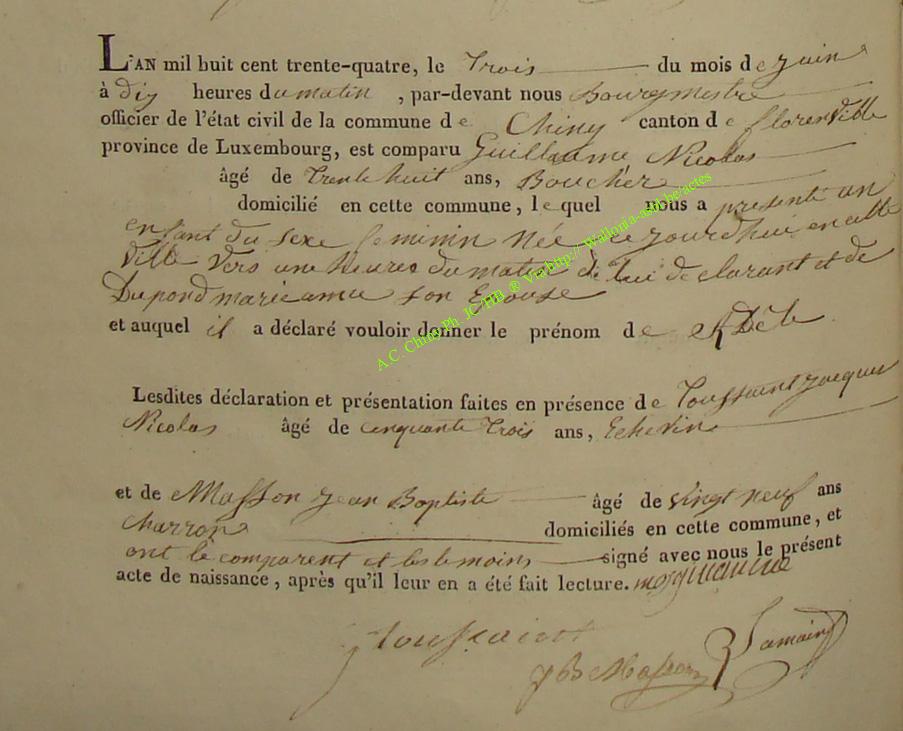 L'AN mil huit cent trente-quatre, le Trois du mois de juin
à Dix heures du matin , par-devant nous Bourgmestre
officier de l'état civil de la commune de Chiny canton de florenville
province de Luxembourg, est comparu Guillaume Nicolas
âgé de Trente huit ans, Boucher
domicilié en cette commune, lequel nous a presenté un
enfant du sexe feminin Née ce jourdhui en cette
ville vers une heures du matin de lui declarant et de
Dupond marie anne son Epouse
et auquel il a déclaré vouloir donner le prénom de ADèle
A.C. Chiny Ph JC HB ® Via http://Wallonia-asbl.be/actes
Lesdites déclaration et présentation faites en présence de Toussaint Jacques
Nicolas âgé de cinquante trois ans, Echevin
et de Masson jean Baptiste âgé de vingt neuf ans
charron domiciliés en cette commune, et
ont le comparent et les temoins signé avec nous le présent
acte de naissance, après qu'il leur en a été fait lecture.
j toussaint
J B Masson